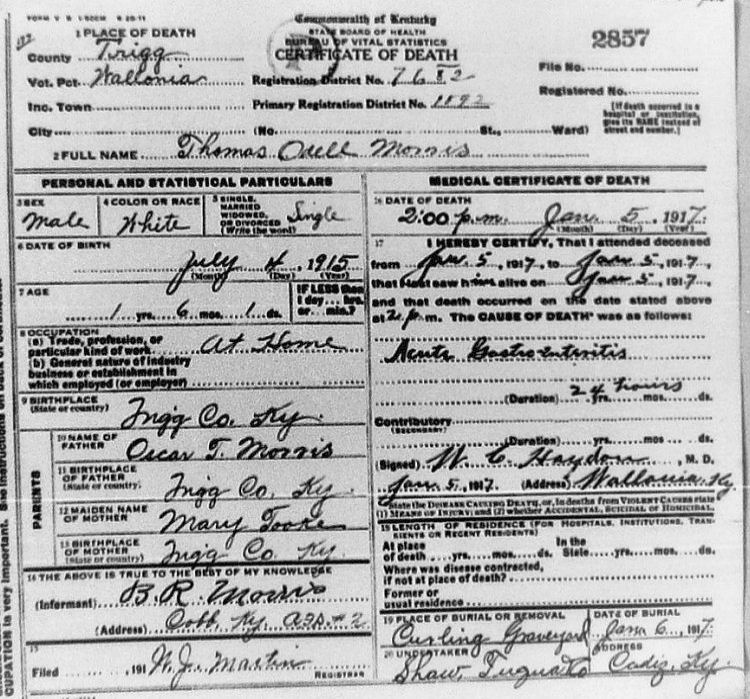 Commonwealth of Kentucky
STATE BOARD OF HEALTH
BUREAU OF VITAL STATISTICS
CERTIFICATE OF DEATH
1 PLACE OF DEATH
County Trigg
Vot. Pct. Wallonia
Inc. Town
City (No. St., Ward)
Registration District No. 7682
Primary Registration District No.
2857
File No.
Registered No.
[If death occurred in a
hospital or institution,
give its NAME instead of
street and number.]
2 FULL NAME Thomas Odell Morris
PERSONAL AND STATISTICAL PARTICULARS
3 SEX
Male
4 COLOR OR RACE
White
5 SINGLE,
MARRIED
WIDOWED,
OR DIVORCED
(Write the word)
Single
6 DATE OF BIRTH
July 4, 1915
(Month) (Day) (Year)
7 AGE
1 yrs. 6 mos. 1 ds.
IF LESS than
1 day... hrs.
or... min.?
8 OCCUPATION
(a) Trade, profession, or
particular kind of work At Home
(b) General nature of industry
business or establishment in
which employed (or employer)
9 BIRTHPLACE
(State or country) Trigg Co. Ky.
PARENTS
10 NAME OF
FATHER Oscar T. Morris
11 BIRTHPLACE
OF FATHER
(State or country) Trigg Co. Ky.
12 MAIDEN NAME
OF MOTHER Mary Tooke
13 BIRTHPLACE
OF MOTHER
(State or country) Trigg Co. Ky.
14 THE ABOVE IS TRUE TO THE BEST OF MY KNOWLEDGE
(Informant) B. R. Morris
(Address) Cobb, Ky. #2
15
Filed 191 W. J. Martin
REGISTRAR
MEDICAL CERTIFICATE OF DEATH
16 DATE OF DEATH
2:00 p.m. Jan. 5, 1917
(Month) (Day) (Year)
17 I HEREBY CERTIFY, That I attended deceased
from Jan. 5, 1917, to Jan 5, 1917,
that I last saw him alive on Jan 5, 1917,
and that death occurred on the date stated above
at 2 p.m. The CAUSE OF DEATH* was as follows:
Acute Gastroenteritis
24 hours
(Duration) yrs. mos. ds.
Contributory
(SECONDARY)
(Duration) yrs. mos. ds.
(Signed) W. C. Haydon, M. D.
Jan 5, 1917 (Address) Wallonia, Ky
State the DISEASE CAUSING DEATH, or, in deaths from VIOLENT CAUSES state
(1) MEANS OF INJURY; and (2) whether ACCIDENTAL, SUICIDAL or HOMICIDAL.
18 LENGTH OF RESIDENCE (FOR HOSPITALS, INSTITUTIONS, TRAN-
SIENTS OR RECENT RESIDENTS)
At place In the
of death yrs. mos. ds. State yrs. mos. ds.
Where was disease contracted,
if not at place of death?
Former or
usual residence
19 PLACE OF BURIAL OR REMOVAL
Curling Graveyard
DATE OF BURIAL
Jan 6, 1917
20 UNDERTAKER
Shaw,
ADDRESS
Cadiz, Ky